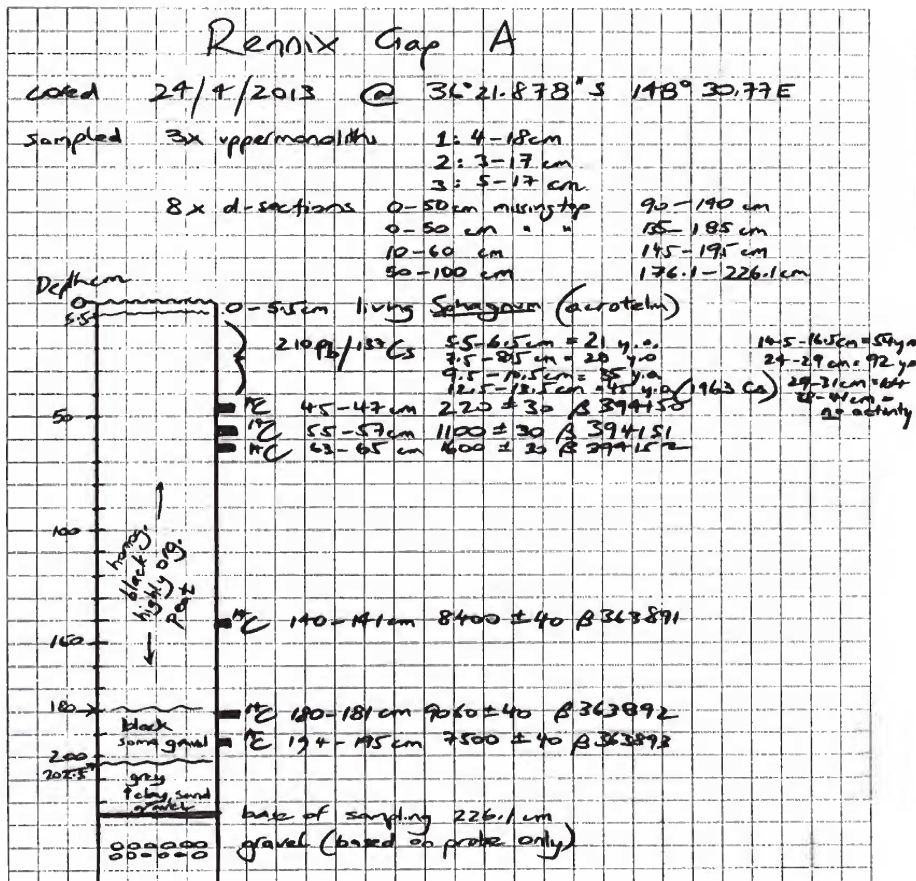 Rennix Gap A
cored 24/4/2013 @ 36°21.878"S 148°30.77E
sampled 3x upper monoliths 1: 4-18cm
2: 3-17 cm
3: 5-17 cm
8x d-sections 0-50cm missing top 90-140 cm
0-50 cm " " 135-185 cm
10-60 cm 145-195 cm
50-100 cm 176.1-226.1cm
Depth cm
0
5.5
0-5.5cm living Sphagnum (acrotelm)
210Pb/137Cs 5.5-6.5cm = 21 y.o. 14.5-16.5cm = 54 y.o
7.5-8.5cm = 28 y.o 24-29 cm = 92 yo
9.5-10.5cm = 35 y.o 29-31cm =
12.5-13.5cm = 45 y.o (1963 Cs) no activity
50
14C 45-47cm 220 ± 30 β 394150
14C 55-57cm 1100 ± 30 β 394151
14C 63-65 cm 1600 ± 30 β 394152
100
homog.
black
highly org.
peat
14C 140-141cm 8400 ± 40 β 363891
150
180
14C 180-181cm 9060 ± 40 β 363892
black
some gravel
14C 194-195cm 7500 ± 40 β 363893
200
202.5
grey
clay, sand
gravel
base of sampling 226.1 cm
gravel (based on probe only)